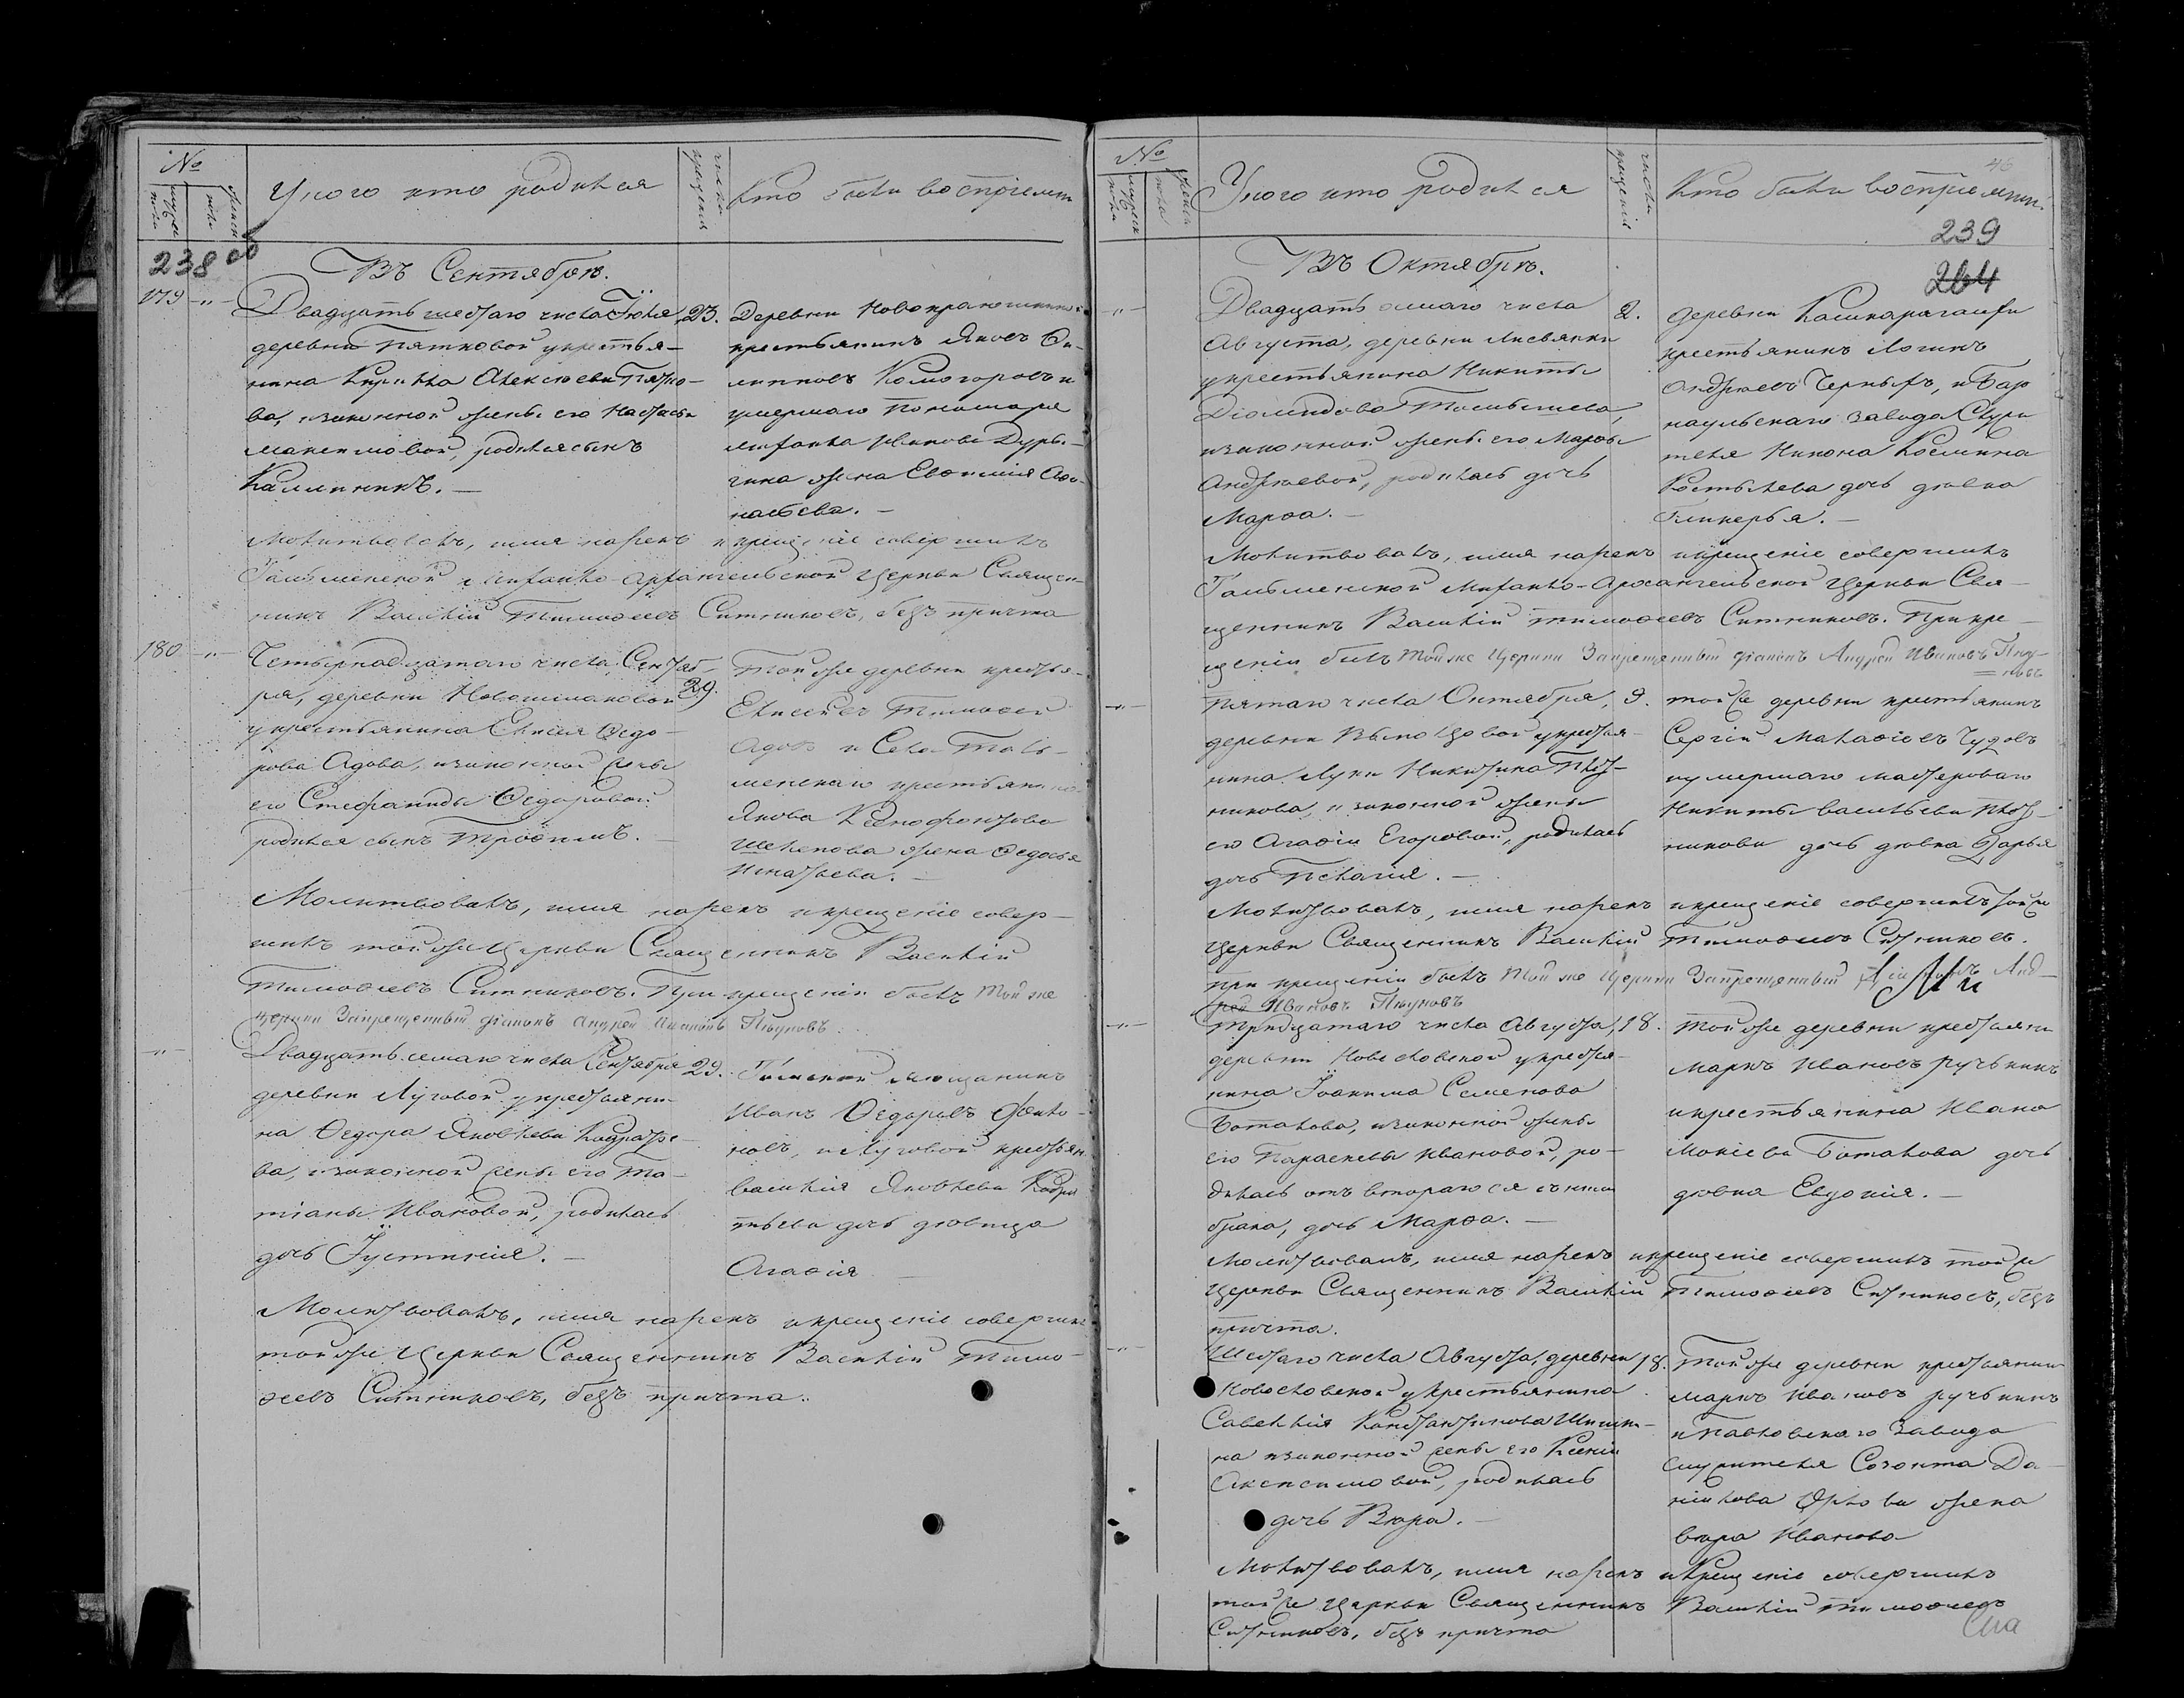 №
мужеска пола
женска пола
У кого кто родился
число крещенія
Кто были воспріемни
238 об
Въ Сентябрѣ.
179 - „ -
Двадцать шестаго числа Іюля
деревни Пятковой у крестья-
нина Кирилла Алексѣева Пятко-
ва, и законной жены его Настасьи
Максимовой, родился сынъ
Каллиникъ. —
23.
Деревни Новокраюшкиной
крестьянинъ Яковъ
Коьмогоровъ и
умершаго Пономаря
Михаила Иванова
жена Евѳимія Аѳа-
насьева. —
Молитвовалъ, имя нарекъ и крещеніе совершилъ
Тальменской Михайло-Архангельской Церкви Священ-
никъ Василій Тимоѳеевъ Ситниковъ, безъ причта
180 - „ -
Четырнадцатаго числа Сентяб-
ря, деревни Новошмаковой
у крестьянина Елисея Ѳедо-
рова Адова, и законной жены
его Стефаниды Ѳедоровой
родился сынъ Трофимъ. —
29.
Той же деревни крестья-
Елисей Тимофеевъ
Адовъ и Села Таль-
менскаго крестьянина
Якова Ксенофонтова
Шелепова жена Ѳедосья
Игнатьева. —
Молитвовалъ, имя нарекъ и крещеніе совер-
шилъ той же Церкви Священникъ Василій
Тимоѳеевъ Ситниковъ. При крещеніи былъ той же
Церкви Запрещенный діаконъ Андрей Ивановъ Плуновъ.
- „ -
Двадцать седьмаго числа Сентября
деревни Луговой у крестьяни-
на Ѳедора Яковлева Кадрать-
ва, и законной жены его Та-
тіаны Ивановой, родилась
дочь Іустинія. —
29.
Томской мѣщанинъ
Иванъ Ѳедоровъ
новъ, и Луговой крестьян
Василія Яковлева Кадра
тьева дочь дѣвица
Агафія —
Молитвовалъ, имя нарекъ и крещеніе совершилъ
той же Церкви Священникъ Василій Тимо-
ѳеевъ Ситниковъ, безъ причта.
№
мужеска пола
женска пола
У кого кто родился
число крещенія
Кто были воспріемни.
46
239
264
Въ Октябрѣ.
- „ -
Двадцать осмаго числа
Августа, деревни Лисвянки
у крестьянина Никиты
Діомидова
и законной жены его Марѳы
Андреевой, родилась дочь
Марѳа. —
2.
деревни Кашкарагаихи
крестьянинъ Логинъ
Андреевъ Черныхъ, и Бар
наульскаго завода Служи
теля Никона Космина
Костылева дочь дѣвка
Гликерья. —
Молитвовалъ, имя нарекъ и крещеніе совершилъ
Тальменской Михайло-Архангельской Церкви Свя-
щенникъ Василій Тимоѳеевъ Ситниковъ. При кре-
щеніи былъ той же Церкви Запрещенный діаконъ Андрей Ивановъ Плу-
новъ
- „ -
Пятаго числа Октября,
деревни Выползовой у крестья-
нина Луки Никитина Плот-
никова, и законной жены
его Агафіи Егоровой, родилась
дочь Пелагія. —
9.
той же деревни крестьянинъ
Сергій Малафіевъ Чудовъ
и умершаго мастероваго
Никиты Васильева Плот-
никова дочь дѣвка Дарья
Молитвовалъ, имя нарекъ и крещеніе совершилъ той же
Церкви Священникъ Василій Тимоѳеевъ Ситниковъ.
При крещеніи былъ той же Церкви Запрещенный Діаконъ Анд-
рей Ивановъ Плуновъ
- „ -
Тридцатаго числа Августа,
деревни Новословской у крестья-
нина Іоакима Семенова
Баталова, и законной жены
его Параскевы Ивановой, ро-
дилась отъ втораго ея съ ним
брака, дочь Марѳа. —
18.
Той же деревни крестьянин
Марко Ивановъ Ручькинъ
и крестьянина Ивана
Мокіева Баталова дочь
дѣвка Евдокія. —
Молитвовалъ, имя нарекъ и крещеніе совершилъ той же
Церкви Священникъ Василій Тимоѳеевъ Ситниковъ, безъ
причта.
- „ -
Шестаго числа Августа, деревни
Новословской у крестьянина
Савелія Константинова Шишки-
на и законной жены его Ксеніи
Аксисимовой, родилась
дочь Вѣра. —
18.
Той же деревни крестьянин
Марко Ивановъ Ручькинъ
и Павловскаго Завода
Служителя Созонта Да-
нилова Орлова жена
Вѣра Иванова
Молитвовалъ, имя нарекъ и Крещеніе совершилъ
той же Церкви Священникъ Василій Тимоѳеевъ
Ситниковъ, безъ причта